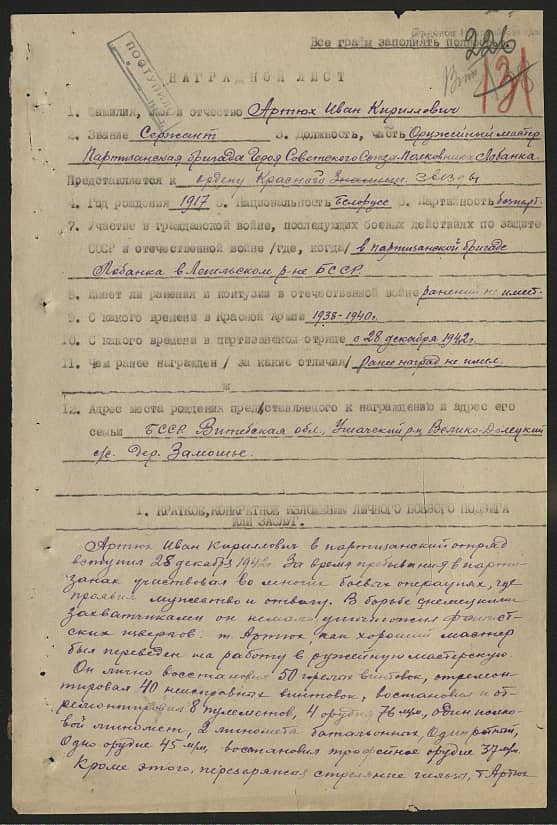 Все графы заполнять полностью
226
131
ПОСТУПИЛО
НАГРАДНОЙ ЛИСТ
1. Фамилия, имя и отчество Артюх Иван Кириллович
2. Звание Сержант 3. Должность, часть Оружейный мастер
Партизанская бригада Героя Советского Союза Полковника Лобанка.
Представляется к ордену Красной Звезды
4. Год рождения 1917 5. Национальность Белорусс 6. Партийность беспарт.
7. Участие в гражданской войне, последующих боевых действиях по защите
СССР и отечественной войне /где, когда/ в партизанской бригаде
Лобанка в Лепельском р-не БССР
8. Имеет ли ранения и контузии в отечественной войне ранений не имеет.
9. С какого времени в Красной Армии 1938-1940г.
10. С какого времени в партизанском отряде с 28 декабря 1942г.
11. Чем ранее награжден /за какие отличия/ ранее наград не имел.
12. Адрес места рождения представляемого к награждению и адрес его
семьи БССР Витебская обл., Ушачский р-н Велико-Долецкий
с/с. дер. Замошье.
1. КРАТКОЕ, КОНКРЕТНОЕ ИЗЛОЖЕНИЕ ЛИЧНОГО БОЕВОГО ПОДВИГА
ИЛИ ЗАСЛУГ.
Артюх Иван Кириллович в партизанский отряд
вступил 28 декабря 1942г. За время пребывания в парти-
занах участвовал во многих боевых операциях, где
проявил мужество и отвагу. В борьбе с немецкими
захватчиками он немало уничтожил фашист-
ских извергов. т. Артюх как хороший мастер
был переведен на работу в оружейную мастерскую.
Он лично восстановил 50 горелых винтовок, отремон-
тировал 40 неисправных винтовок, востановил и от-
ремонтировал 8 пулеметов, 4 орудия 76 мм, один полко-
вой миномет, 2 миномета батальонных, Один ротный,
Одно орудие 45 мм, востановил трофейное орудие 37 мм.
Кроме этого, перезаряжая стреляные гильзы, т Артюх